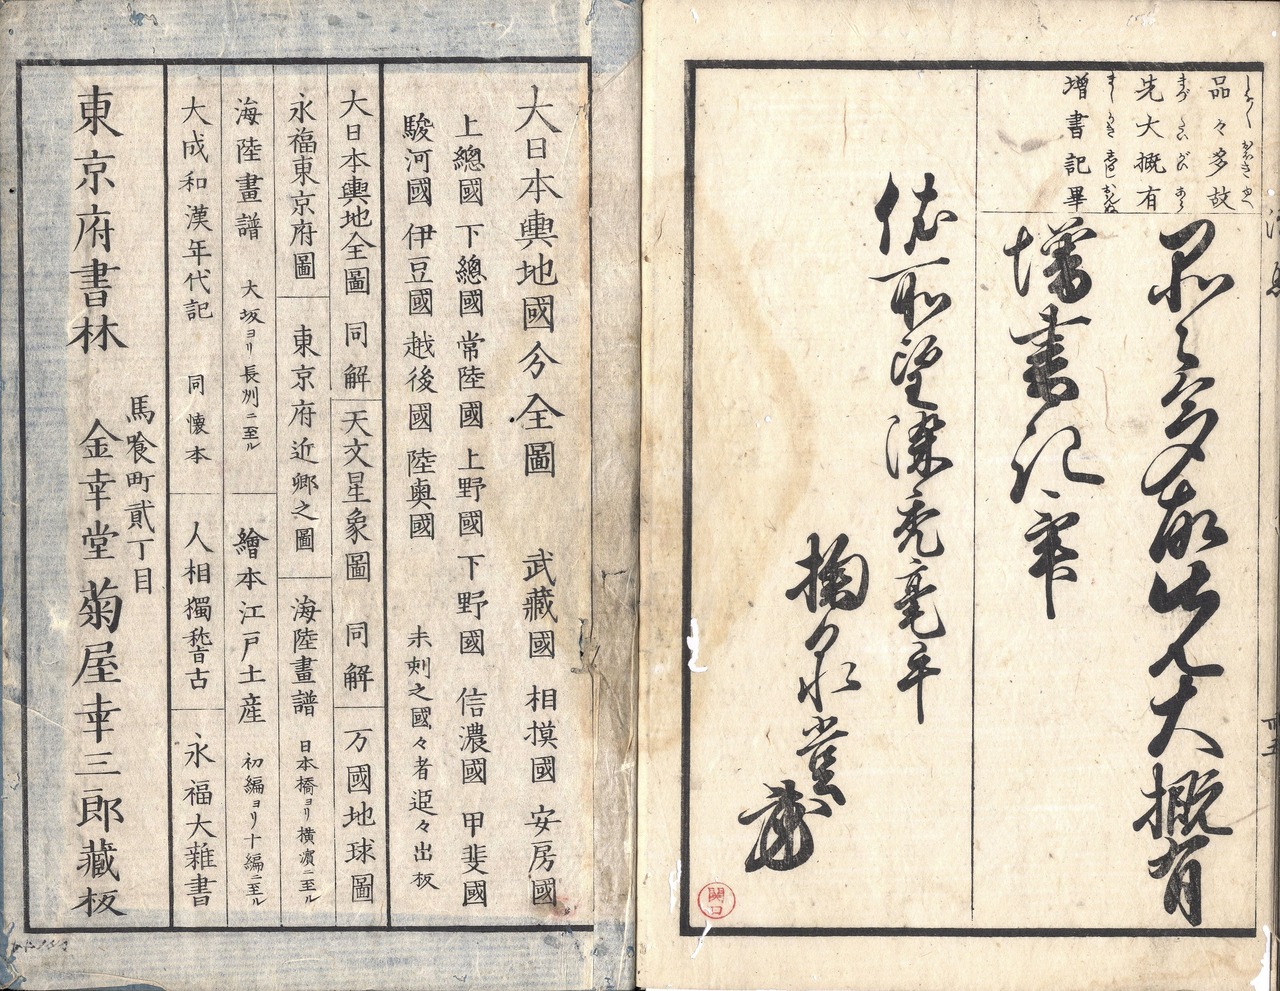 品々多故
先大概有
増書記畢
品々多故先大概有
増書記畢
依所望染禿毫年
大日本輿地國分全圖 武藏國 相摸國 安房國
上總國 下總國 常陸國 上野國 下野國 信濃國 甲斐國
駿河國 伊豆國 越後國 陸奥國 未刺之國々者追々出板
大日本輿地全圖 同解 天文星象圖 同解 万國地球圖
永福東京府圖 東京府近郷之圖 海陸畫譜 日本橋ヨリ横濱ニ至ル
海陸畫譜 大坂ヨリ長州ニ至ル 繪本江戸土産 初編ヨリ十編ニ至ル
大成和漢年代記 同懐本 人相獨稽古 永福大雜書
東京府書林
馬喰町貳丁目
金幸堂 菊屋幸三郎藏板